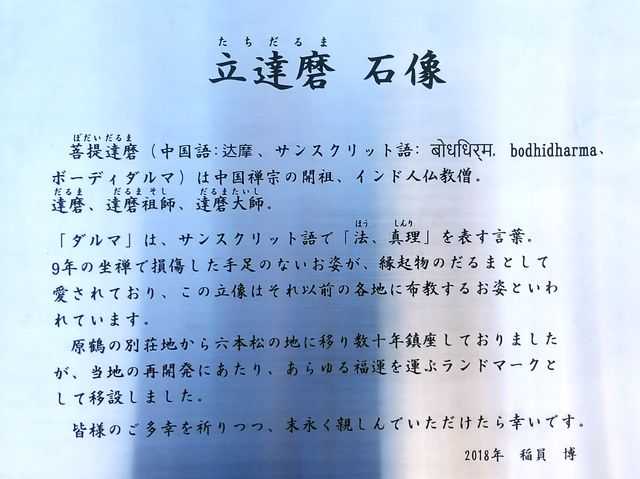 たちだるま
立達磨 石像
ぼだいだるま
菩提達磨（中国語：达摩、サンスクリット語：बोधधिर्म, bodhidharma、
ボーディダルマ）は中国禅宗の開祖、インド人仏教僧。
だるま だるまそし だるまたいし
達磨、達磨祖師、達磨大師。
ほう しんり
「ダルマ」は、サンスクリット語で「法、真理」を表す言葉。
9年の坐禅で損傷した手足のないお姿が、縁起物のだるまとして
愛されており、この立像はそれ以前の各地に布教するお姿といわ
れています。
原鶴の別荘地から六本松の地に移り数十年鎮座しておりました
が、当地の再開発にあたり、あらゆる福運を運ぶランドマークと
して移設しました。
皆様のご多幸を祈りつつ、末永く親しんでいただけたら幸いです。
2018年 稲員 博